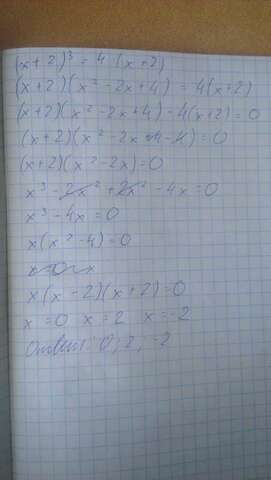 (x+2)³ = 4(x+2)
(x+2)(x²-2x+4) = 4(x+2)
(x+2)(x²-2x+4)-4(x+2)=0
(x+2)(x²-2x+4-4)=0
(x+2)(x²-2x)=0
x³-2x²+2x²-4x=0
x³-4x=0
x(x²-4)=0
x(x-2)(x+2)=0
x=0 x=2 x=-2
Ответ: 0; 2; -2